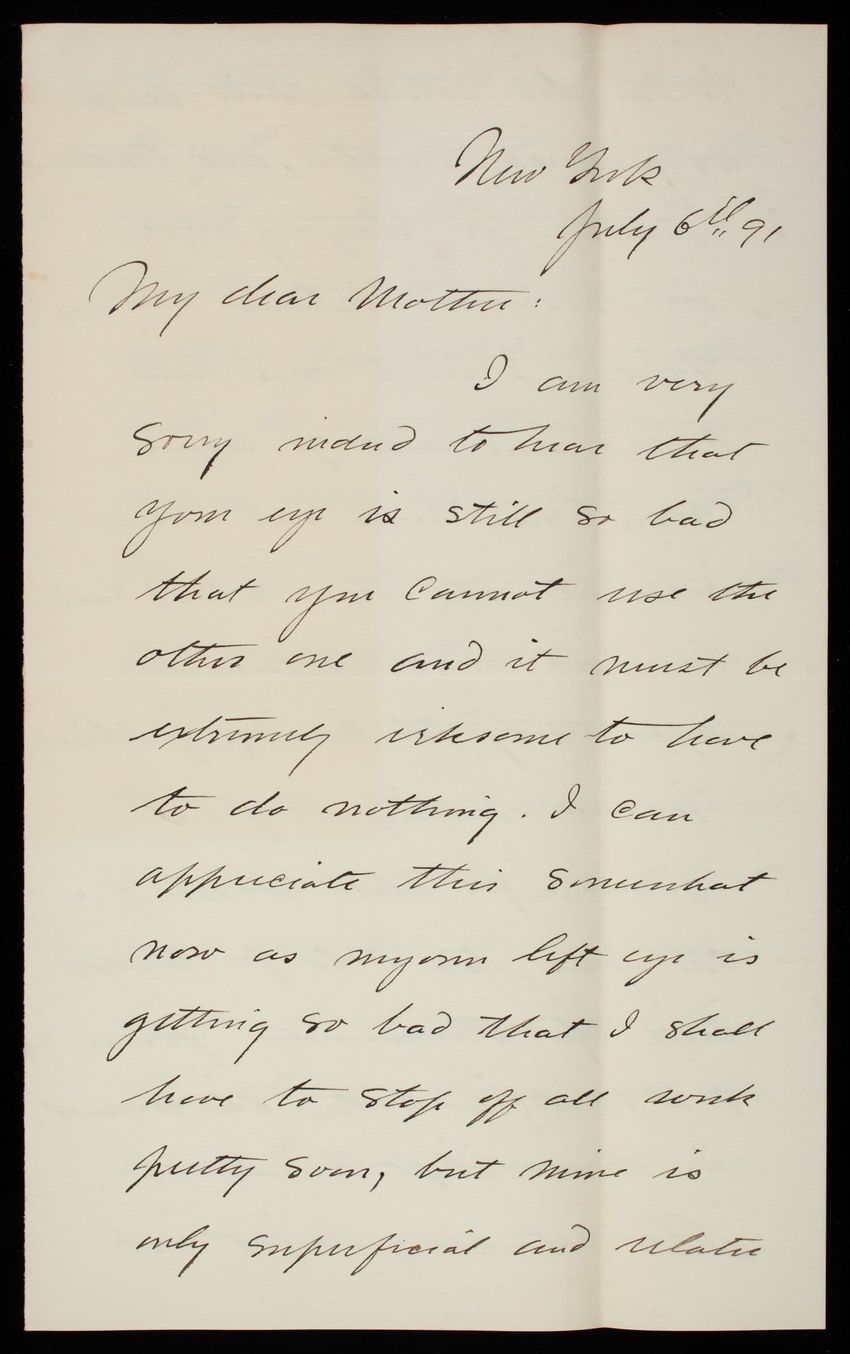 New York
July 6th 91
My dear Mother:
I am very
sorry indeed to hear that
your eye is still so bad
that you cannot use the
other one and it must be
extremely irksome to have
to do nothing. I can
appreciate this somewhat
now as my own left eye is
getting so bad that I shall
have to stop off all work
pretty soon, but mine is
only superficial and